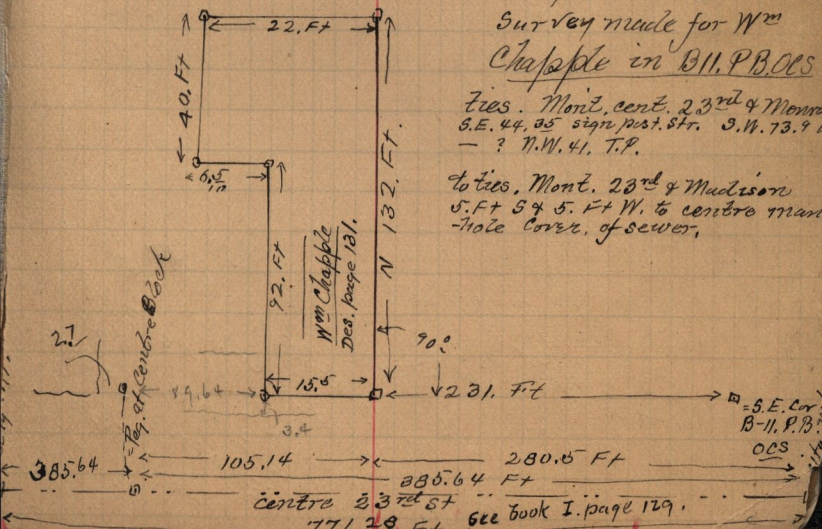 Survey made for Wm
Chapple in B11. P.B. OCS
ties. Mont. cent. 23rd &
S.E. 44.35 sign post. Str. S.W. 73.9
- ? N.W. 41. T.P.
to ties. Mont. 23rd & Madison
5. Ft S & 5. Ft W. to centre man
-hole cover, of sewer.
22. Ft
40. Ft
6.5
N 132. Ft.
92. Ft
Wm Chapple
Des. page 131.
= Peg. at. Centre Block
90°
15.5
89.64
3.4
231. Ft
= S.E. Cor
B-11. P.B.
OCS
385.64
105.14
280.5 Ft
385.64 Ft
centre 23rd St
See book I. page 129.
771.28 Ft